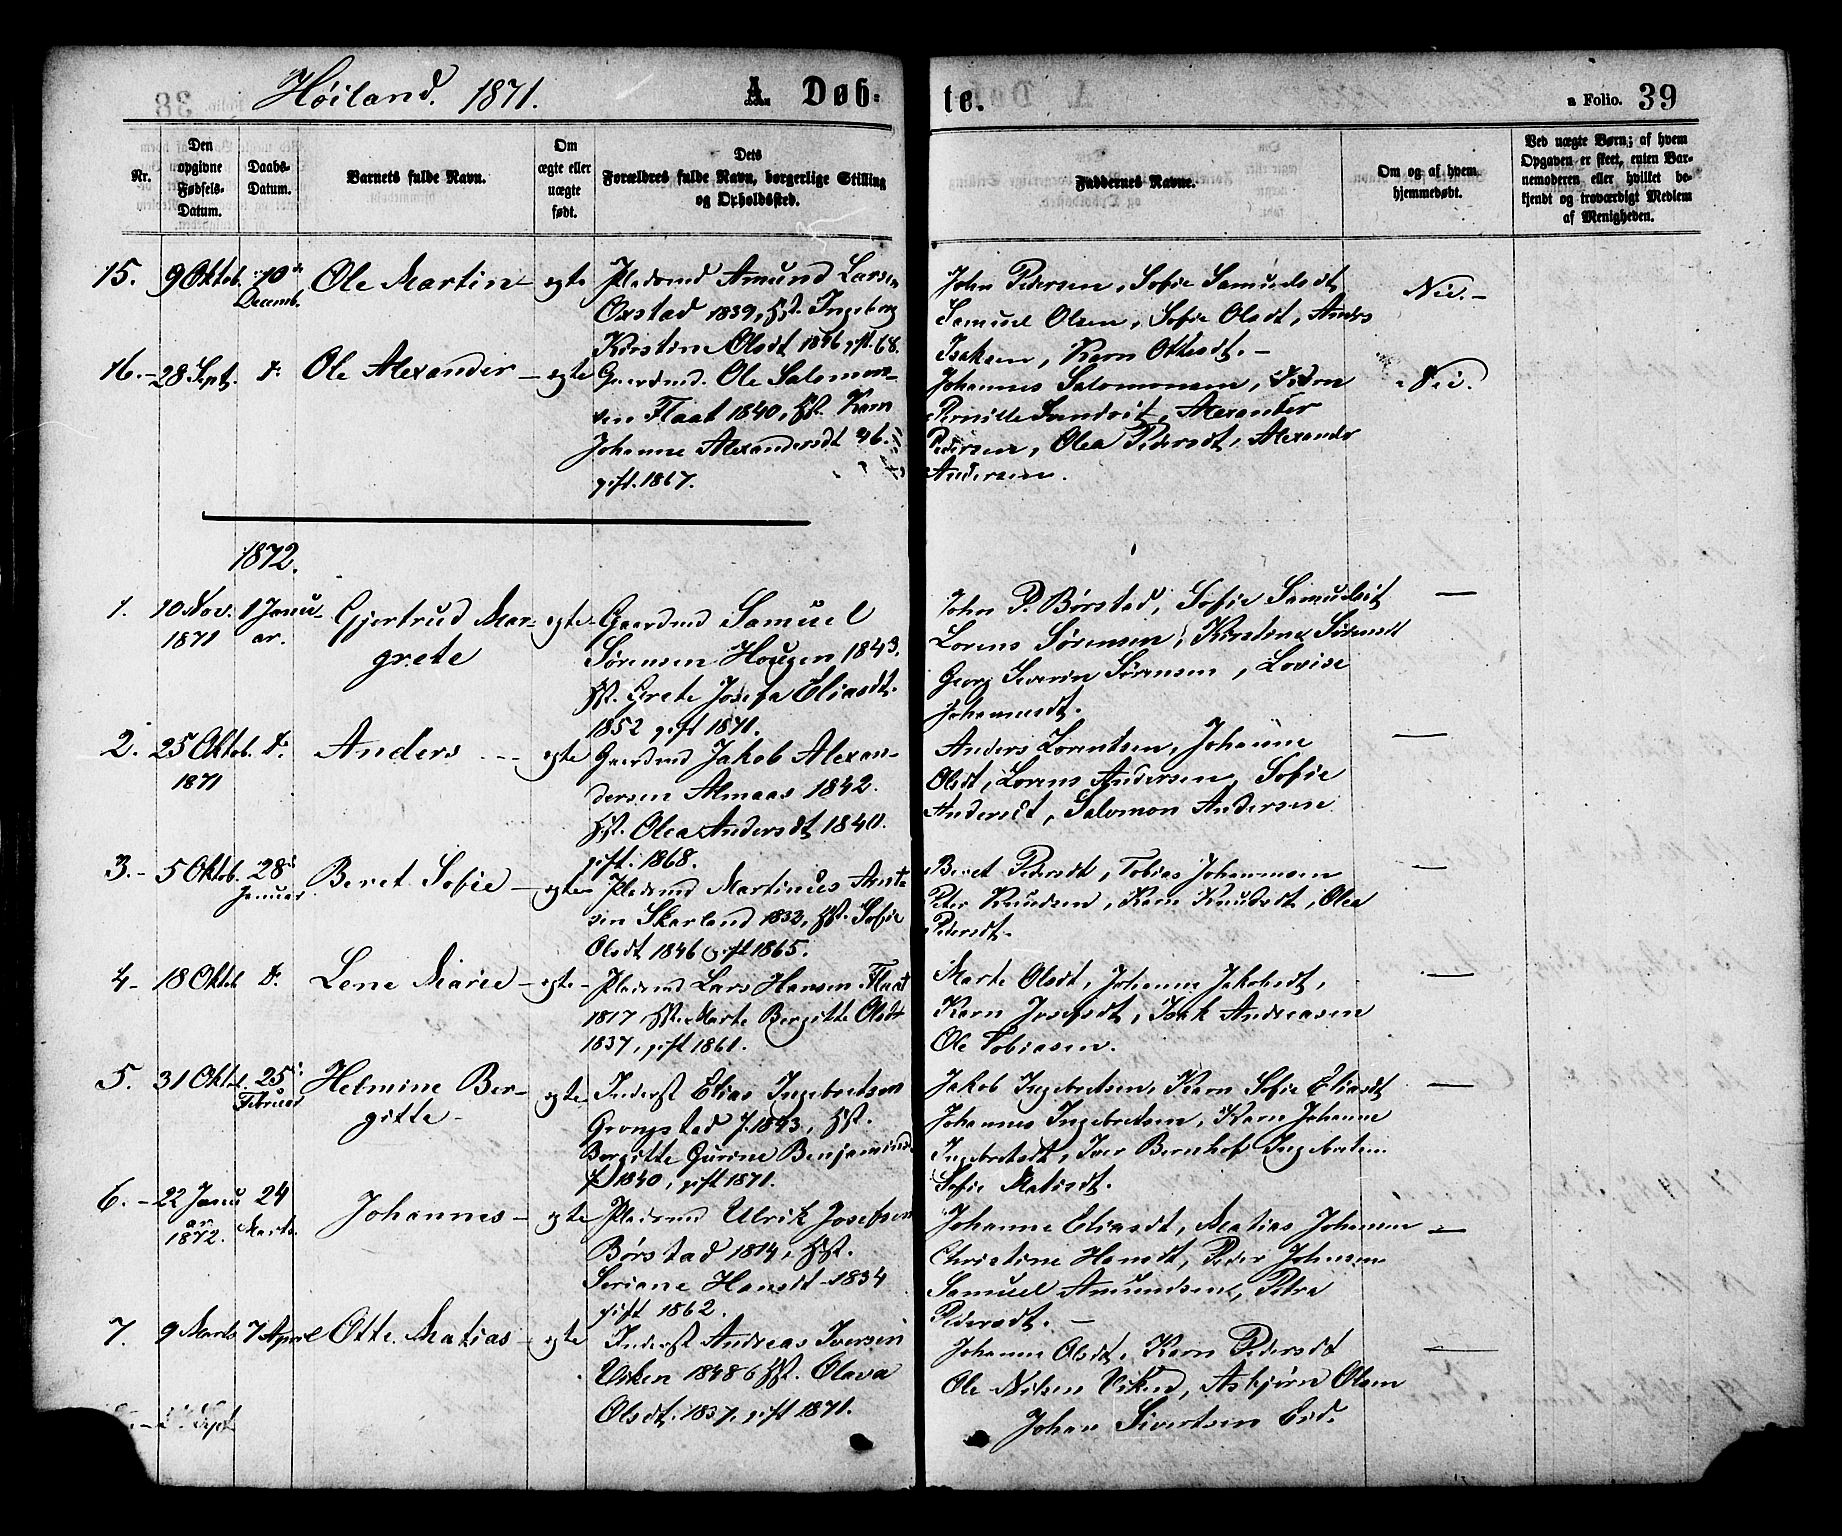 Høiland. 1871.
A. Døb-
te.
a Folio. 39
Nr.
Den opgivne Fødsels-Datum.
Daabs-Datum.
Barnets fulde Navn.
Om ægte eller uægte født.
Dets Forældres fulde Navn, borgerlige Stilling og Opholdssted.
Faddernes Navne.
Om og af hvem hjemmedøbt.
Ved uægte Børn; af hvem Opgaven er skeet, enten Barnemoderen eller hvilket bekjendt og troværdigt Medlem af Menigheden.
15. 9 Oktob. 10de Decemb. Ole Martin - egte
Pladsmd Amund Larsen
Oxstad 1839, Hst. Ingeborg
Kirstine Olsdt 1846, gft. 68.
John Pedersen, Sofie Samuelsdt
Samuel Olsen, Sofie Olsdt, Anders
Isaksen, Karn Ottesdt. -
Nei. -
16. - 28 Sept. do Ole Alexander - egte
Gaardmd. Ole Salomon-
sen Flaat 1840, Hst. Karn
Johanne Alexandersdt 46.
gift. 1867.
Johannes Salomonsen,
Pernille, Alexander
Pedersen, Olea Pedersdt, Alexander
Andersen.
Nei.
1872.
1. 10 Nov. 1871 1 Janu-ar. Gjertrud Mar-
grete
egte
Gaardmd Samuel
Sørensen Hougen 1843.
Hst. Grete Josefa Eliasdt.
1852 gift 1871.
John P. Børstad, Sofie Samuelsdt
Lorens Sørensen, Kirstine Sørensdt
Georg Severin Sørensen, Lovise
Johannesdt.
—
2. 25 Oktob. 1871 do Anders - - - egte
Gaardmd Jakob Alexan-
dersen Almaas 1842.
Hst. Olea Andersdt 1840.
gift. 1868.
Anders Lorentsen, Johanne
Olsdt, Lorens Andersen, Sofie
Andersdt, Salomon Andersen
—
3. - 5 Oktob. 28de Januar Beret Sofie - egte
Pladsmd Martinus Ant-
sen Skarland 1832, Hst. Sofie
Olsdt 1846 gift 1865.
Beret Pedersdt, Tobias Johannesen
Peter Knudsen, Karn Knudsdt, Olea
Pedersdt.
—
4 - 18 Oktob do Lene Marie - egte -
Pladsmd Lars Hansen Flaat
1817, Hst. Marte Bergitte Olsdt
1837, gift 1861.
Marte Olsdt, Johanne Jakobsdt,
Karn Josefsdt, Isak Andreasen
Ole Tobiasen.
—
5. 31 Oktob. 25de Februar Helmine Ber-
gitte -
egte
Inderst Elias Ingebretsen
Grongstad f. 1843, Hst.
Bergitte Gurine Benjaminsdt
f. 1840, gift 1871.
Jakob Ingebretsen, Karn Sofie Eliasdt
Johannes Ingebretsen, Karn Johanne
Ingebretsdt, Iver Bernhof Ingebretsen
Sofie Matisdt.
—
6. - 22 Janu ar 1872. 24 Marts. Johannes - egte
Pladsmd Ulrik Josefsen
Børstad 1814, Hst.
Seriane Hansdt - 1834
gift 1862.
Johanne Eliasdt, Matias Johansen
Christine Hansdt, Peder Johnsen
Samuel Amundsen, Petra
Pedersdt. -
—
7. 9 Marts 7 April Otte Matias - egte
Inderst Andreas Iversen
Viken 1848 Hst. Olava
Olsdt. 1837, gift 1871.
Johanne Olsdt, Karn Pedersdt
Ole Nilsen Viken, Asbjørn Olsen
Johan Sivertsen Eid.
—
Sept.